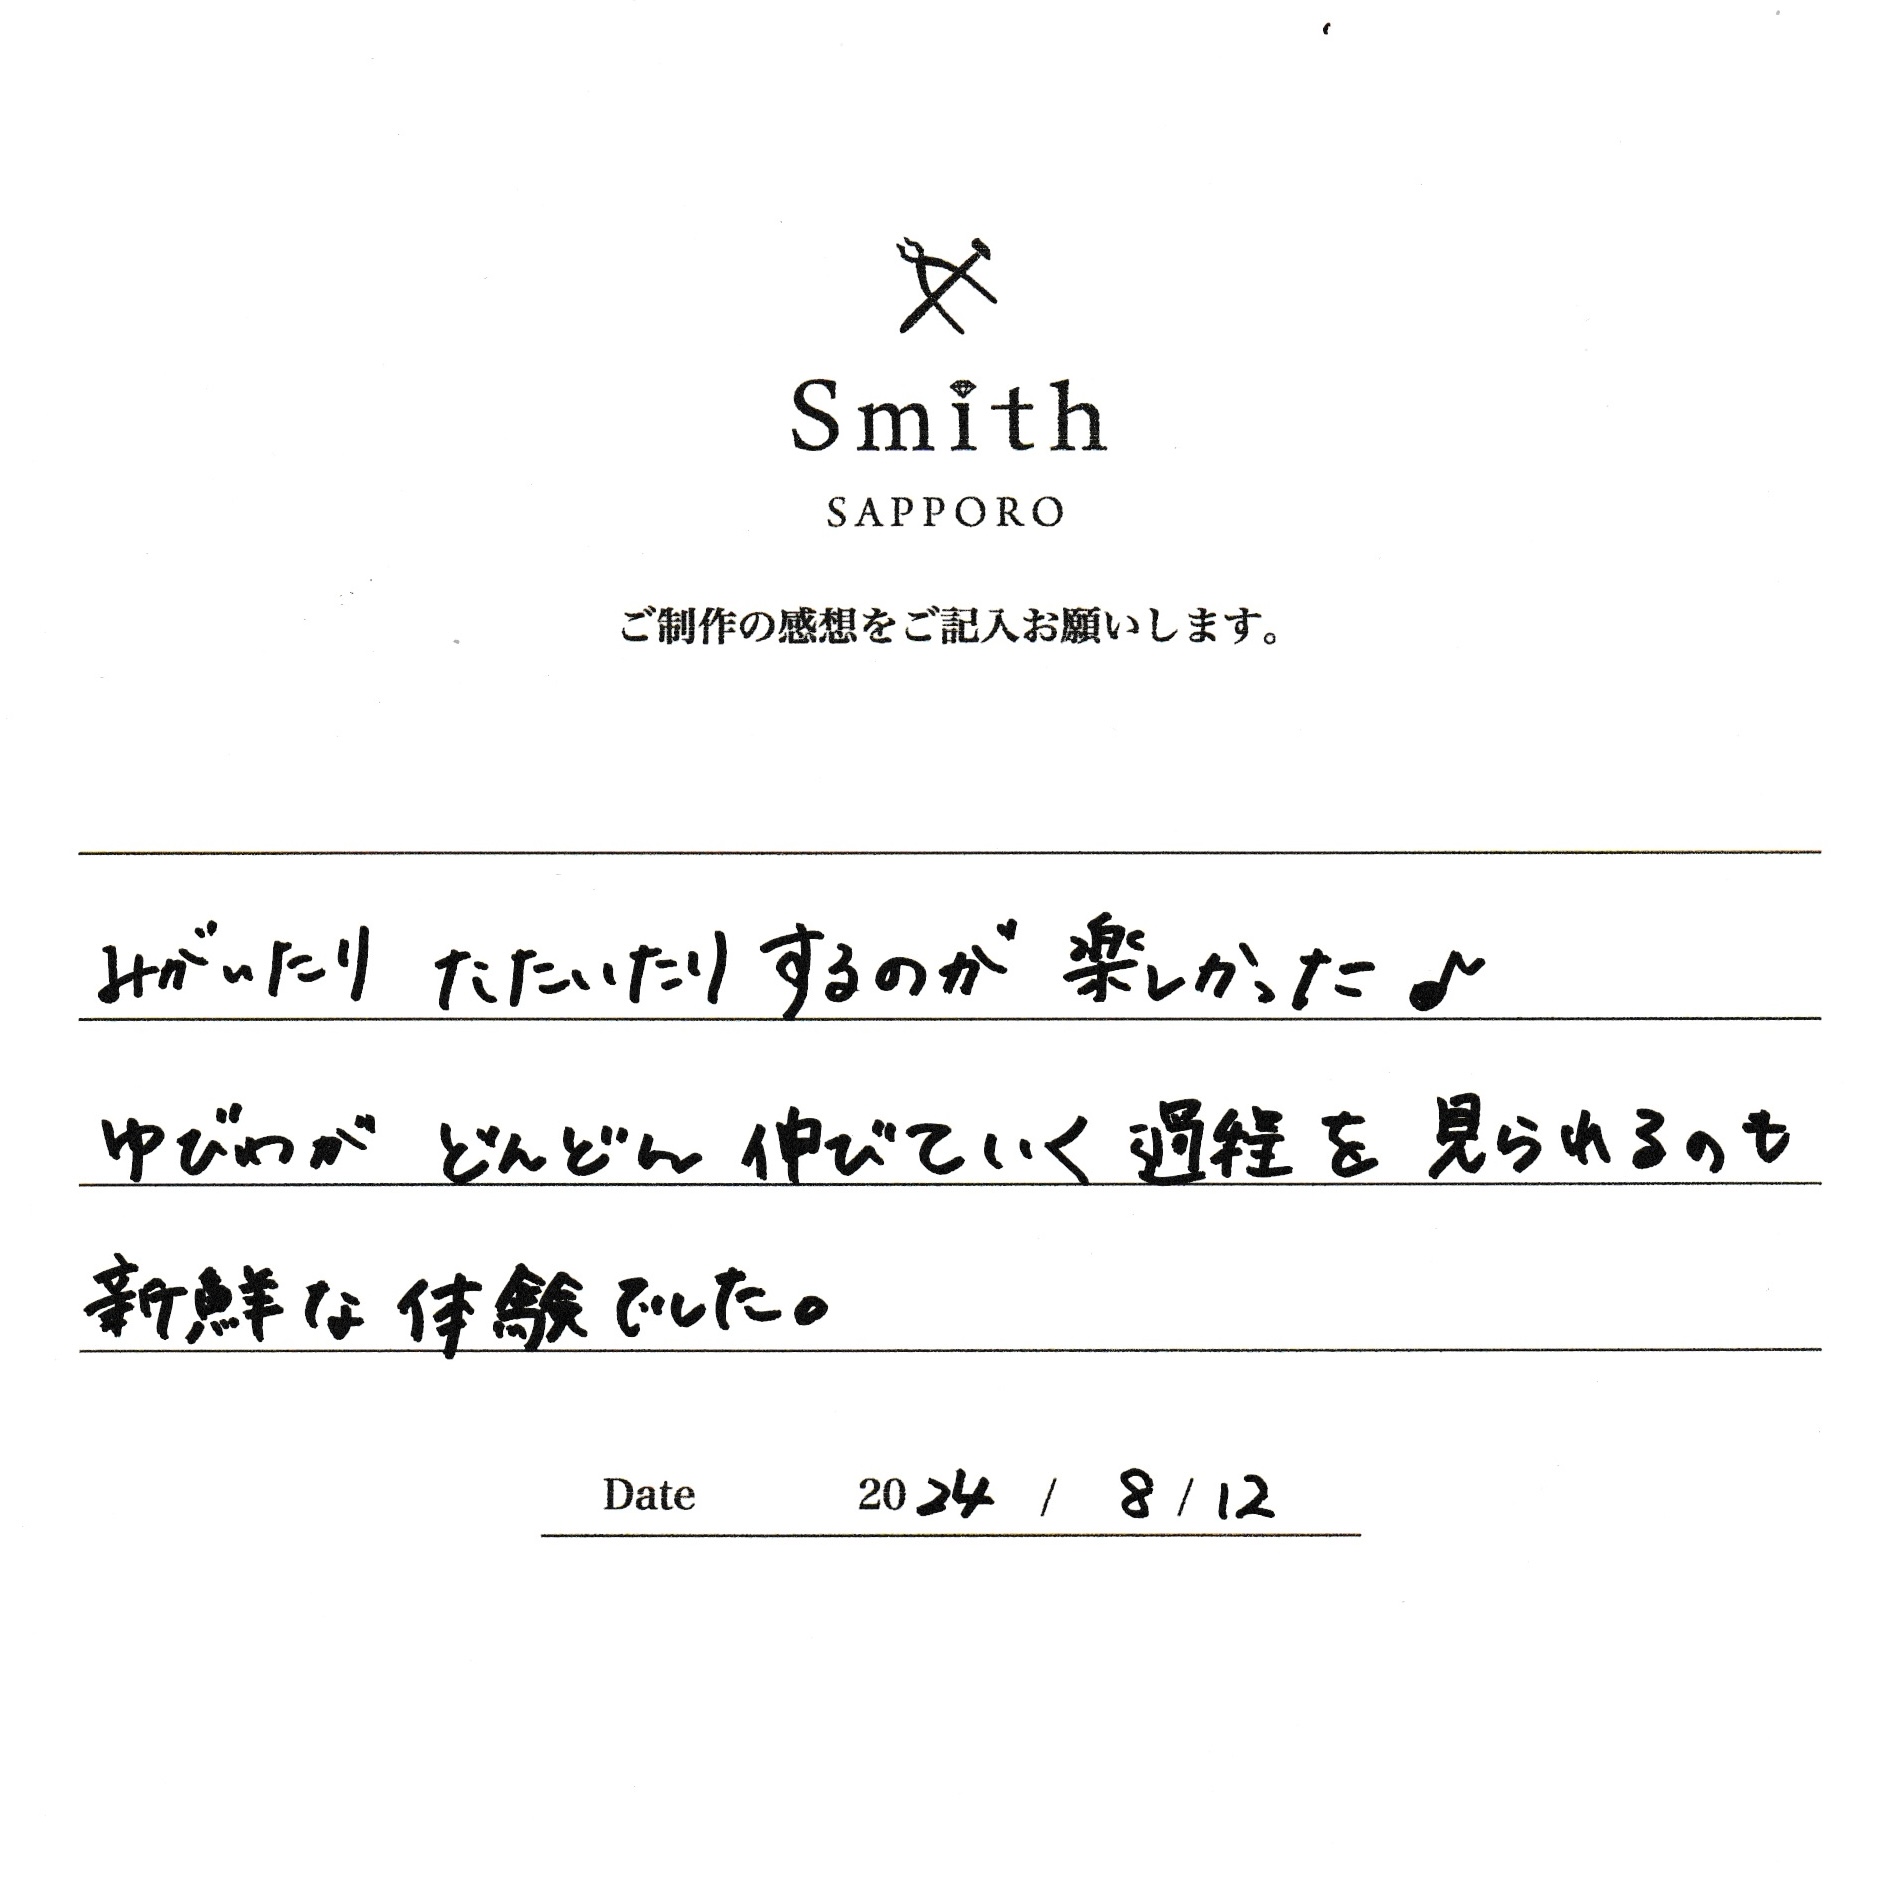 Smith
SAPPORO
ご制作の感想をご記入お願いします。
みがいたり たたいたりするのが 楽しかった♪
ゆびわが どんどん 伸びていく過程を 見られるのも
新鮮な体験でした。
Date 2024 / 8 / 12